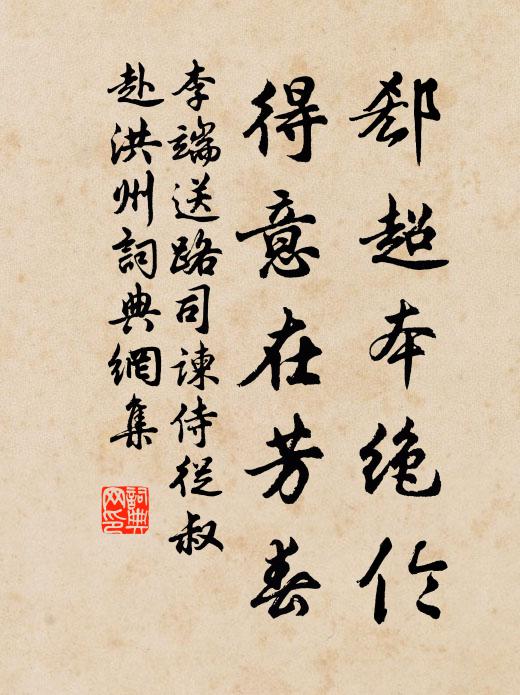 郄超本绝伦
得意在芳春
李端送路司谏侍從叔
赴洪州詞典網集
詞典网印